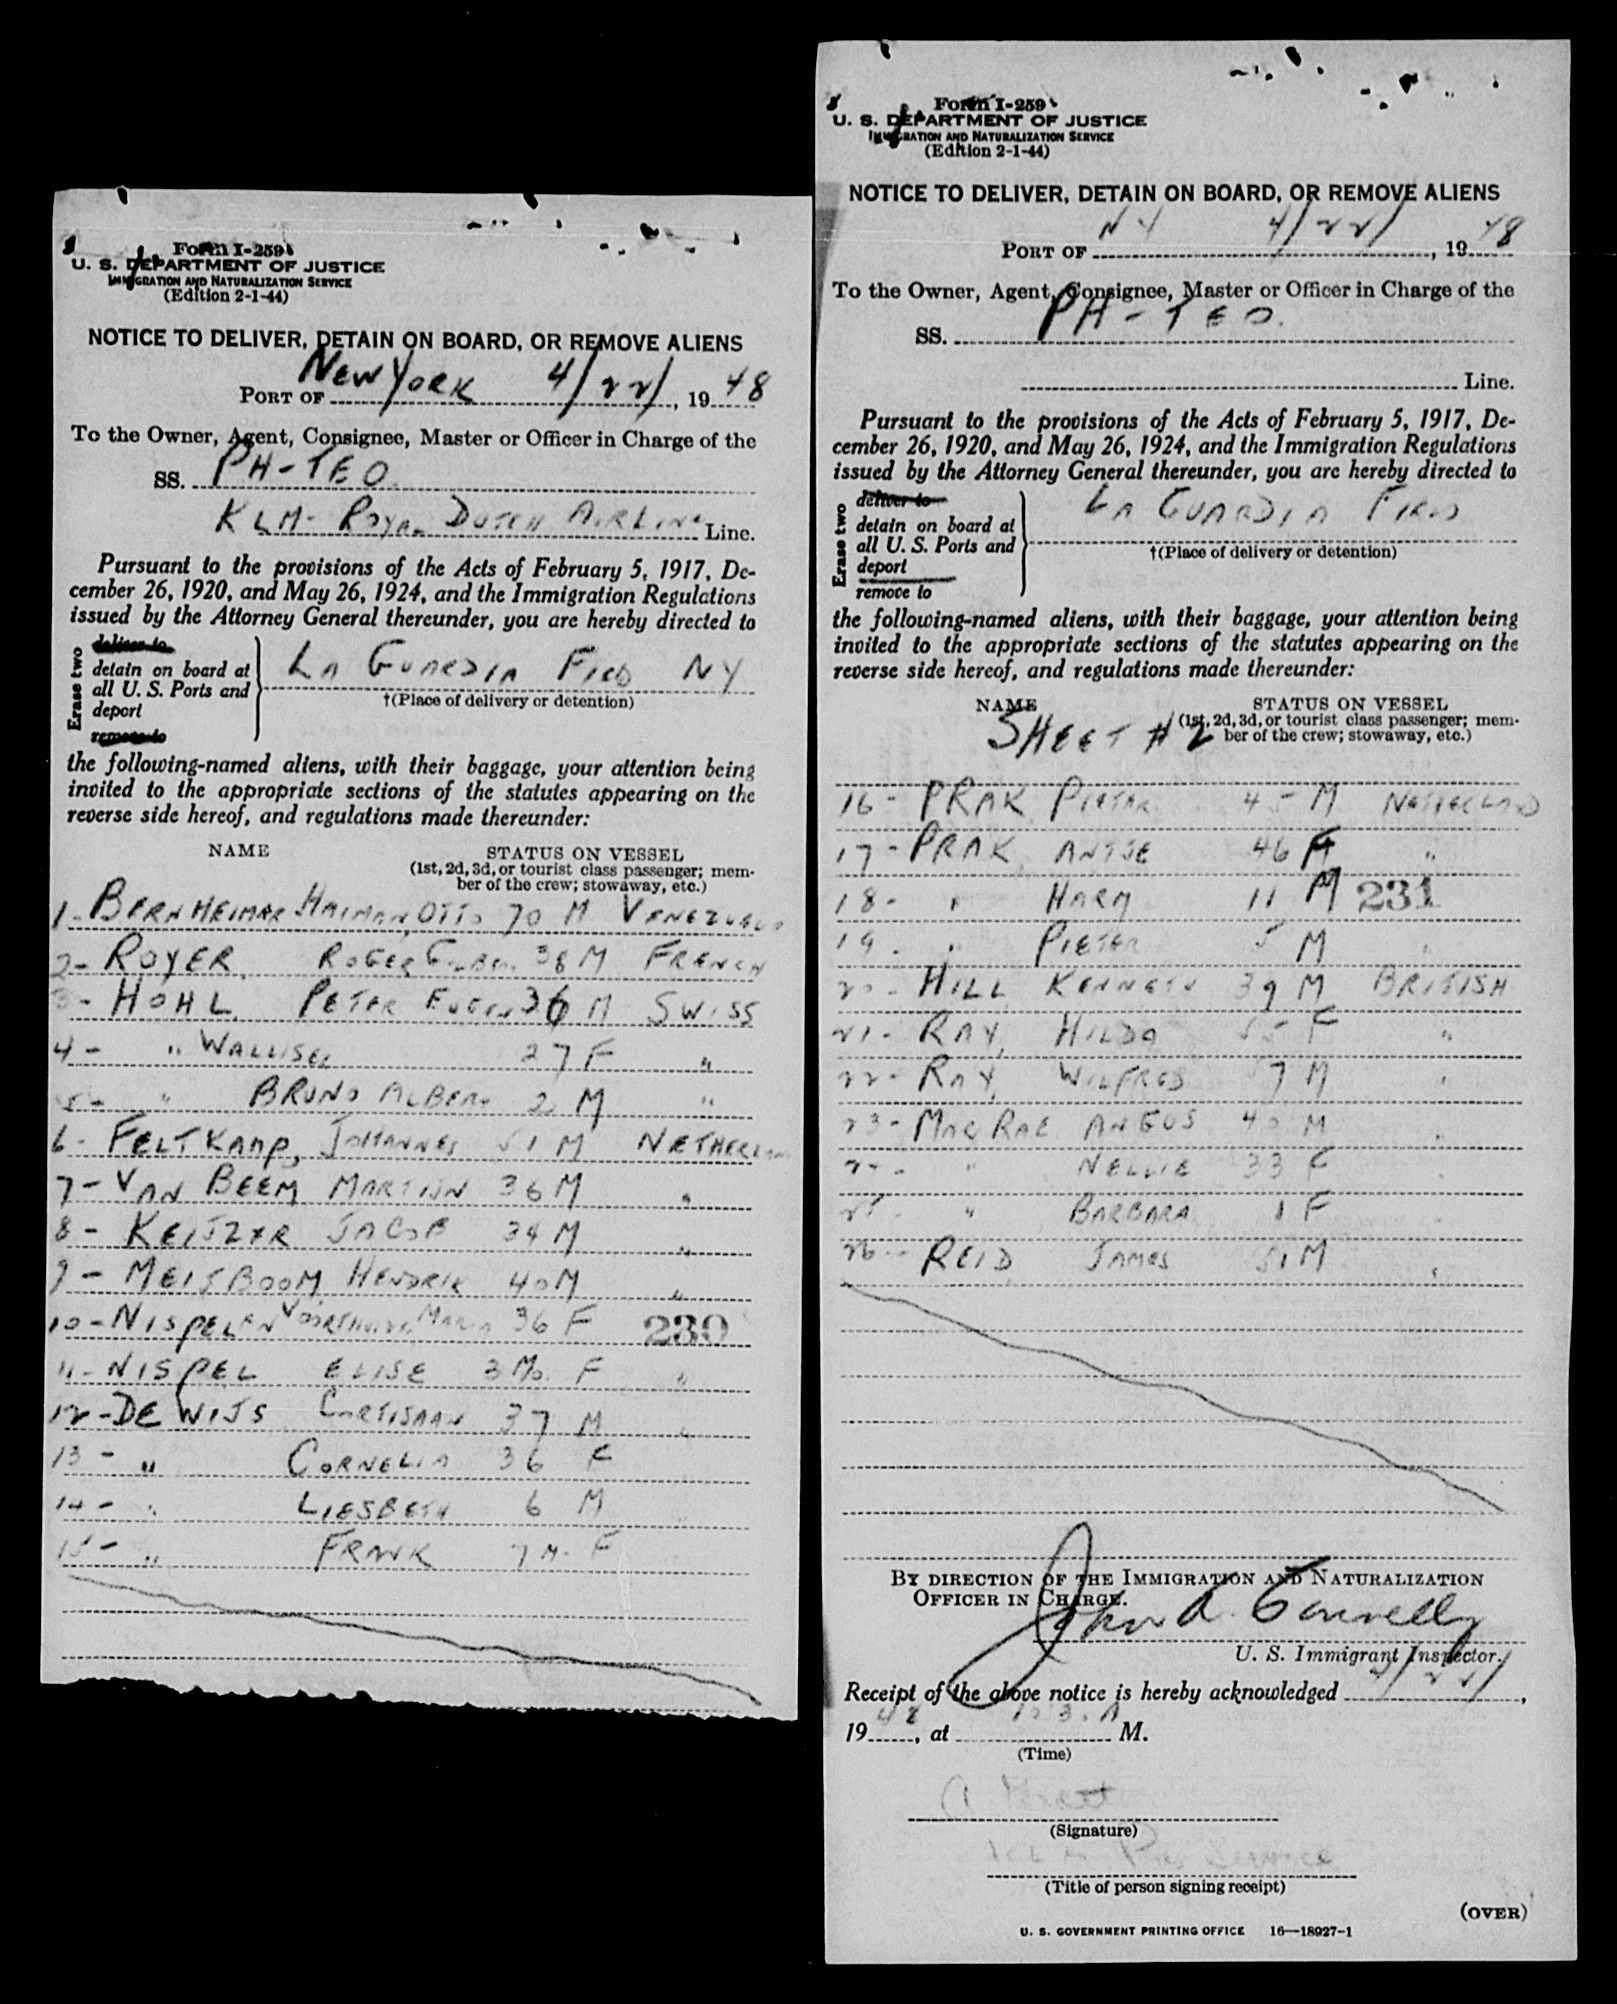 Form I-259
U. S. DEPARTMENT OF JUSTICE
IMMIGRATION AND NATURALIZATION SERVICE
(Edition 2-1-44)
NOTICE TO DELIVER, DETAIN ON BOARD, OR REMOVE ALIENS
PORT OF New York 4/22/, 1948
To the Owner, Agent, Consignee, Master or Officer in Charge of the
SS. PH-TEO
KLM- Royal Dutch Airline Line.
Pursuant to the provisions of the Acts of February 5, 1917, De-
cember 26, 1920, and May 26, 1924, and the Immigration Regulations
issued by the Attorney General thereunder, you are hereby directed to
Erase two
deliver to
detain on board at
all U. S. Ports and
deport
remove to
La Guardia Field NY
†(Place of delivery or detention)
the following-named aliens, with their baggage, your attention being
invited to the appropriate sections of the statutes appearing on the
reverse side hereof, and regulations made thereunder:
NAME STATUS ON VESSEL
(1st, 2d, 3d, or tourist class passenger; mem-
ber of the crew; stowaway, etc.)
1- BERNHEIMER HAIMAN, OTTO 70 M VENEZUELA
2- ROYER, ROGER 38 M FRENCH
3- HOHL, PETER EUGEN 36 M SWISS
4- " 27 F "
5- " BRUNO ALBERT 2 M "
6- FELTKAMP, JOHANNES 51 M NETHERLAND
7- VAN BEEM, MARTIJN 36 M "
8- KEIJZER JACOB 34 M "
9- MEIJBOOM HENDRIK 40 M "
10- NISPEL MARIA 36 F 230
11- NISPEL ELISE 3 Mo. F "
12- DE WIJS 37 M "
13- " CORNELIA 36 F
14- " LIESBETH 6 M
15- " FRANK 7 M. F
Form I-259
U. S. DEPARTMENT OF JUSTICE
IMMIGRATION AND NATURALIZATION SERVICE
(Edition 2-1-44)
NOTICE TO DELIVER, DETAIN ON BOARD, OR REMOVE ALIENS
PORT OF NY 4/22/, 1948
To the Owner, Agent, Consignee, Master or Officer in Charge of the
SS. PH-TEO.
Line.
Pursuant to the provisions of the Acts of February 5, 1917, De-
cember 26, 1920, and May 26, 1924, and the Immigration Regulations
issued by the Attorney General thereunder, you are hereby directed to
Erase two
deliver to
detain on board at
all U. S. Ports and
deport
remove to
La Guardia Field
†(Place of delivery or detention)
the following-named aliens, with their baggage, your attention being
invited to the appropriate sections of the statutes appearing on the
reverse side hereof, and regulations made thereunder:
NAME STATUS ON VESSEL
(1st, 2d, 3d, or tourist class passenger; mem-
ber of the crew; stowaway, etc.)
SHEET # 2
16- PRAK PIETER 45 M NETHERLAND
17- PRAK, ANTJE 46 F "
18- " HARM 11 M 231
19- " PIETER 5 M "
20- HILL, KENNETH 39 M BRITISH
21- RAY, HILDA 55 F "
22- RAY, WILFRED M "
23- MACRAE ANGUS 40 M "
24- " NELLIE 33 F "
25- " BARBARA 1 F
26- REID JAMES 51 M "
BY DIRECTION OF THE IMMIGRATION AND NATURALIZATION
OFFICER IN CHARGE.
John A. Connelly
U. S. Immigrant Inspector.
Receipt of the above notice is hereby acknowledged 4/22/,
1948, at A M.
(Time)
(Signature)
KLM Service
(Title of person signing receipt)
(OVER)
U. S. GOVERNMENT PRINTING OFFICE 16—18927-1